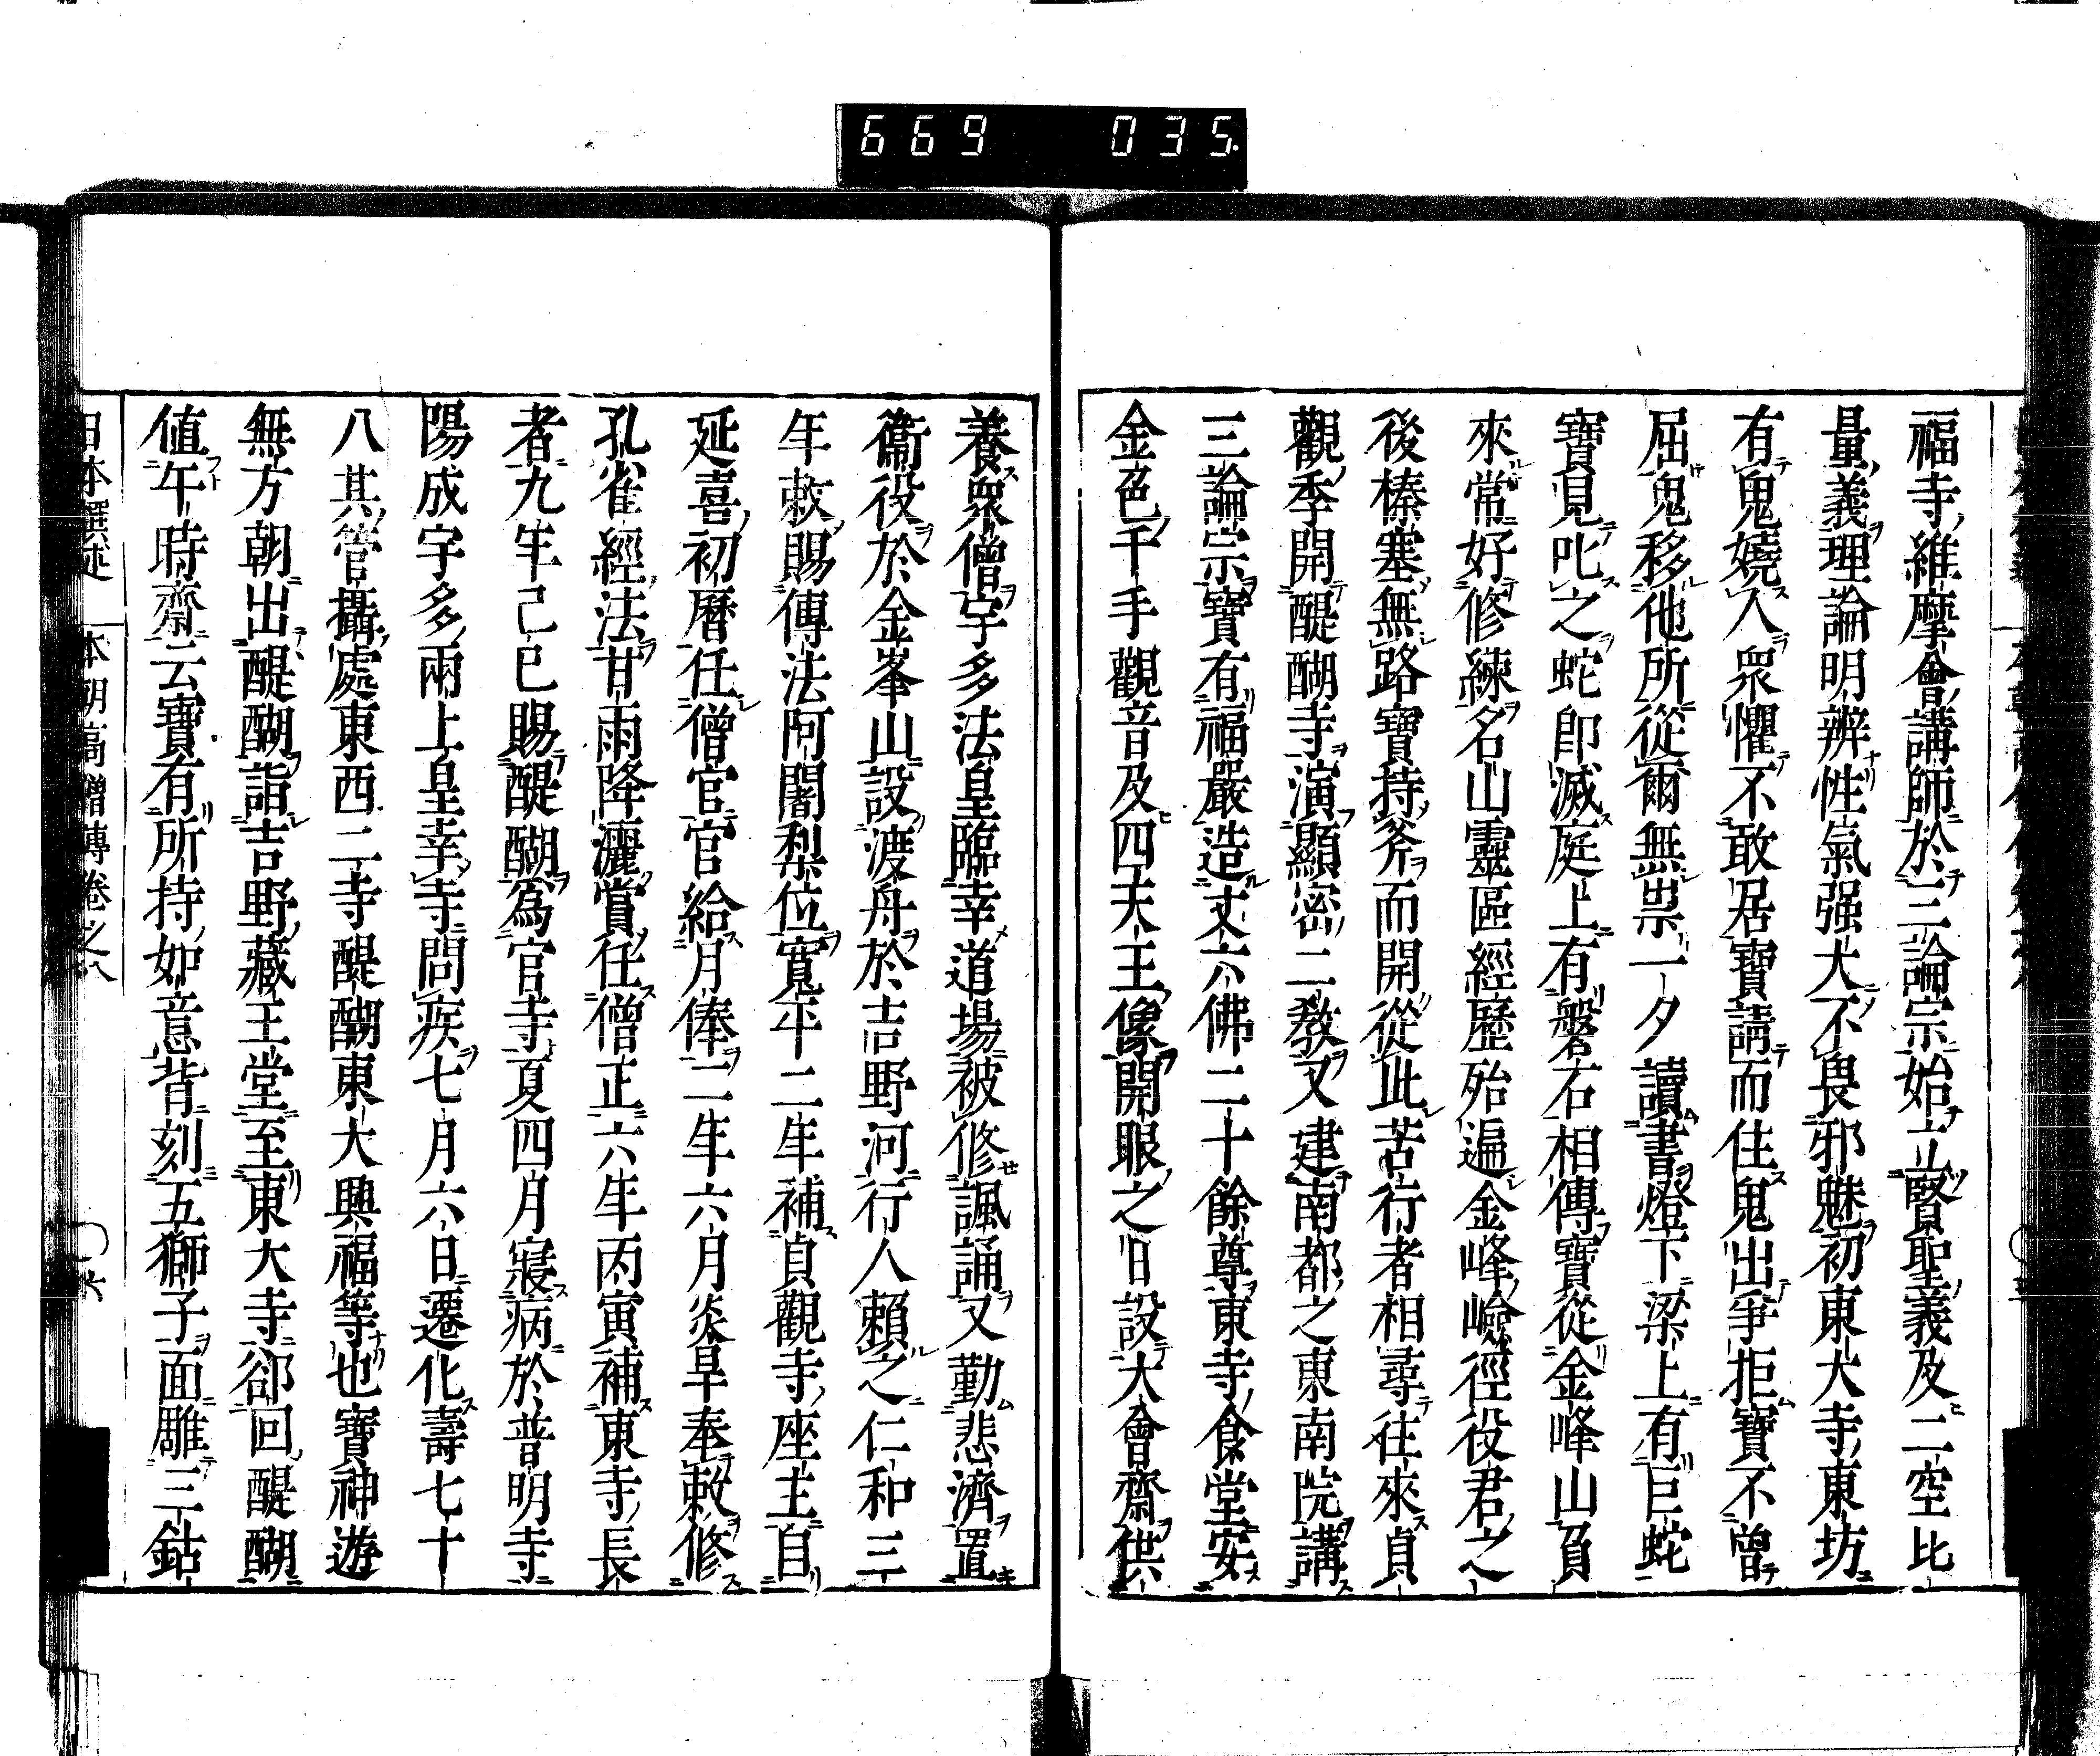 669 035
福寺維摩會講師於三論宗始立賢聖義及二空比
量義理論明辨性氣强大不畏邪魅初東大寺東坊
有鬼嬈人衆懼不敢居寶請而住鬼出爭拒寶不曾
屈鬼移他所從爾無祟一夕讀書燈下梁上有巨蛇
寶見叱之蛇卽滅庭上有磐石相傳寶從金峰山負
來常好修練名山靈區經歷殆遍金峰嶮徑役君之
後榛塞無路寶持斧而開從此苦行者相尋往來貞
觀季開醍醐寺演顯密二敎又建南都之東南院講
三論宗寶有福嚴造丈六佛二十餘尊東寺食堂安
金色千手觀音及四天王像開眼之日設大會齋供
養衆僧宇多法皇臨幸道場被修諷誦又勤悲濟置
衞役於金峯山設渡舟於吉野河行人賴之仁和三
年敕賜傳法阿闍梨位寬平二年補貞觀寺座主自
延喜初曆任僧官官給月俸二年六月炎旱奉敕修
孔雀經法甘雨降灑賞任僧正六年丙寅補東寺長
者九年己巳賜醍醐爲官寺夏四月寢病於普明寺
陽成宇多兩上皇幸寺問疾七月六日遷化壽七十
八其管攝處東西二寺醍醐東大興福等也寶神遊
無方朝出醍醐詣吉野藏王堂至東大寺卻回醍醐
値午時齋云寶有所持如意背刻五獅子面雕三鈷
日本撰述 本朝高僧傳卷之八 六